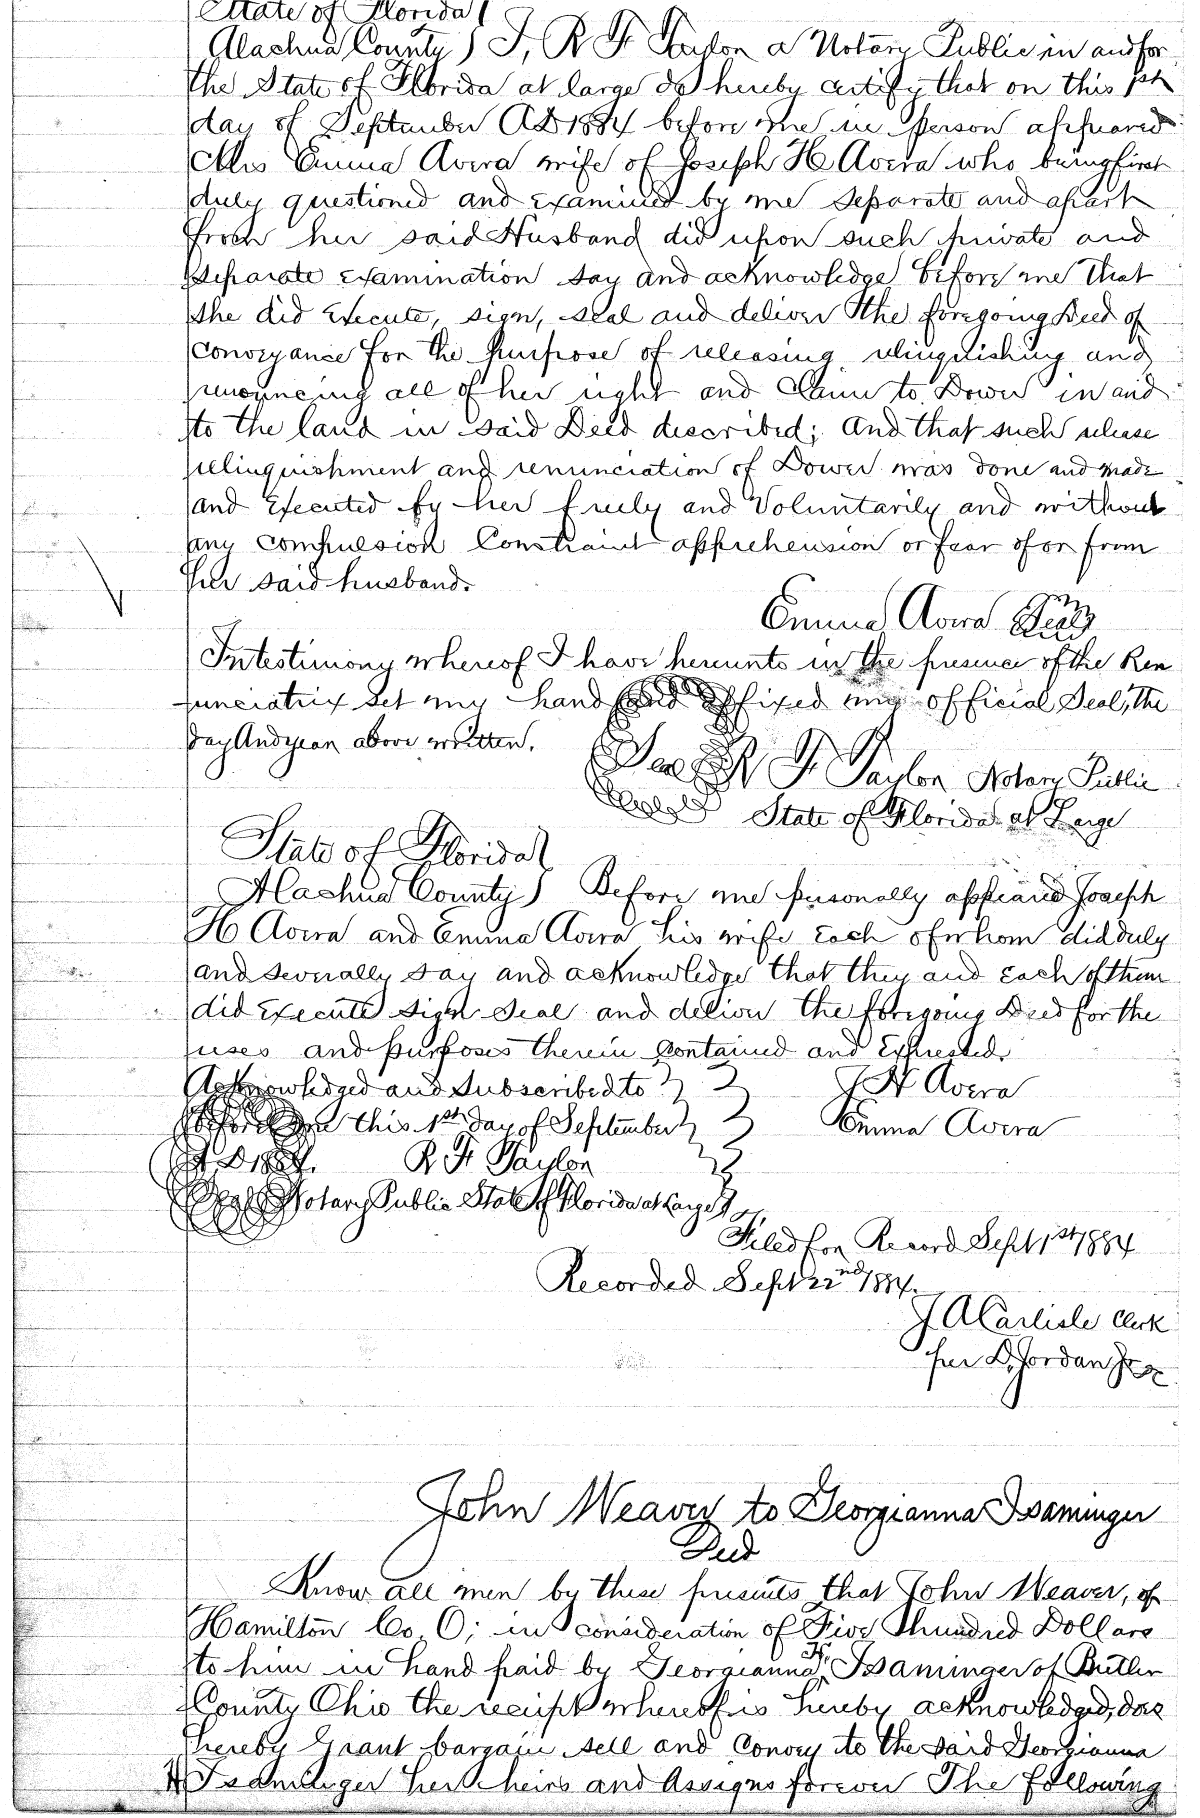 State of Florida}
Alachua County} I, R F Taylor a Notary Public in and for
the State of Florida at large do hereby certify that on this 1st
day of September AD 1884 before me in person appeared
Mrs Emma Avera wife of Joseph H Avera who being first
duly questioned and examined by me separate and apart
from her said Husband did upon such private and
separate examination say and acknowledge before me that
she did Execute, sign, seal and deliver the foregoing Deed of
Conveyance for the purpose of releasing relinquishing and
renouncing all of her right and Claim to Dower in and
to the land in said Deed described; And that such release
relinquishment and renunciation of Dower was done and made
and Executed by her freely and Voluntarily and without
any compulsion Constraint apprehension or fear of or from
her said husband.
Emma Avera Seal
In testimony whereof I have hereunto in the presence of the Ren
unciatrix set my hand and affixed my official Seal, the
day And year above written.
Seal R F Taylor Notary Public
State of Florida at Large
State of Florida}
Alachua County} Before me personally appeared Joseph
H Avera and Emma Avera his wife Each of whom did duly
and severally say and acknowledge that they and Each of them
did Execute Sign Seal and deliver the foregoing Deed for the
uses and purposes therein Contained and Expressed.
Acknowledged and Subscribed to } J H Avera
before me this 1st day of September } Emma Avera
A D 1884. R F Taylor
Seal Notary Public State of Florida at Large
Filed for Record Sept 1st 1884
Recorded Sept 22nd 1884.
J A Carlisle Clerk
per D. Jordan Jr
John Weaver to Georgianna Isaminger
Deed
Know all men by these presents that John Weaver, of
Hamilton Co, O; in consideration of Five Hundred Dollars
to him in hand paid by Georgianna H. Isaminger of Butler
County Ohio the receipt whereof is hereby acknowledged, does
hereby Grant bargain sell and Convey to the said Georgianna
H Isaminger her heirs and Assigns forever The following